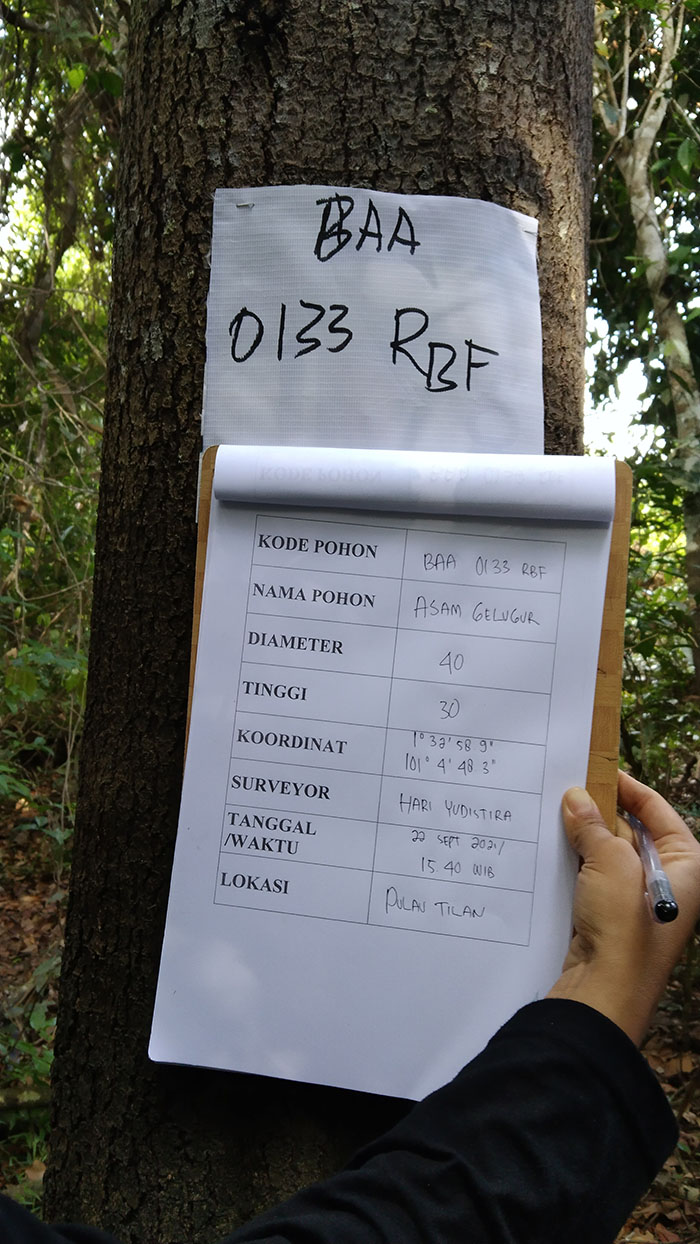 BAA
0133 RBF
KODE POHON BAA 0133 RBF
NAMA POHON ASAM GELUGUR
DIAMETER 40
TINGGI 30
KOORDINAT 1° 32' 58 9"
101° 4' 48 3"
SURVEYOR HARI YUDISTIRA
TANGGAL 22 SEPT 2021/
/WAKTU 15.40 WIB
LOKASI PULAU TILAN